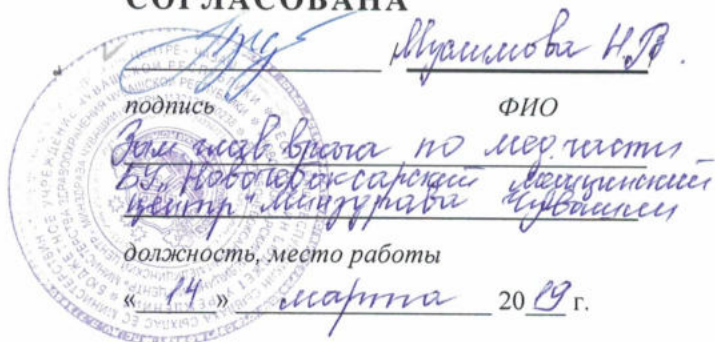 СОГЛАСОВАНА
Н.В.
подпись ФИО
Зам глав врача по мед. части
БУ „Новочебоксарский медицинский
центр" Минздрава Чувашии
должность, место работы
« 14 » марта 2019 г.